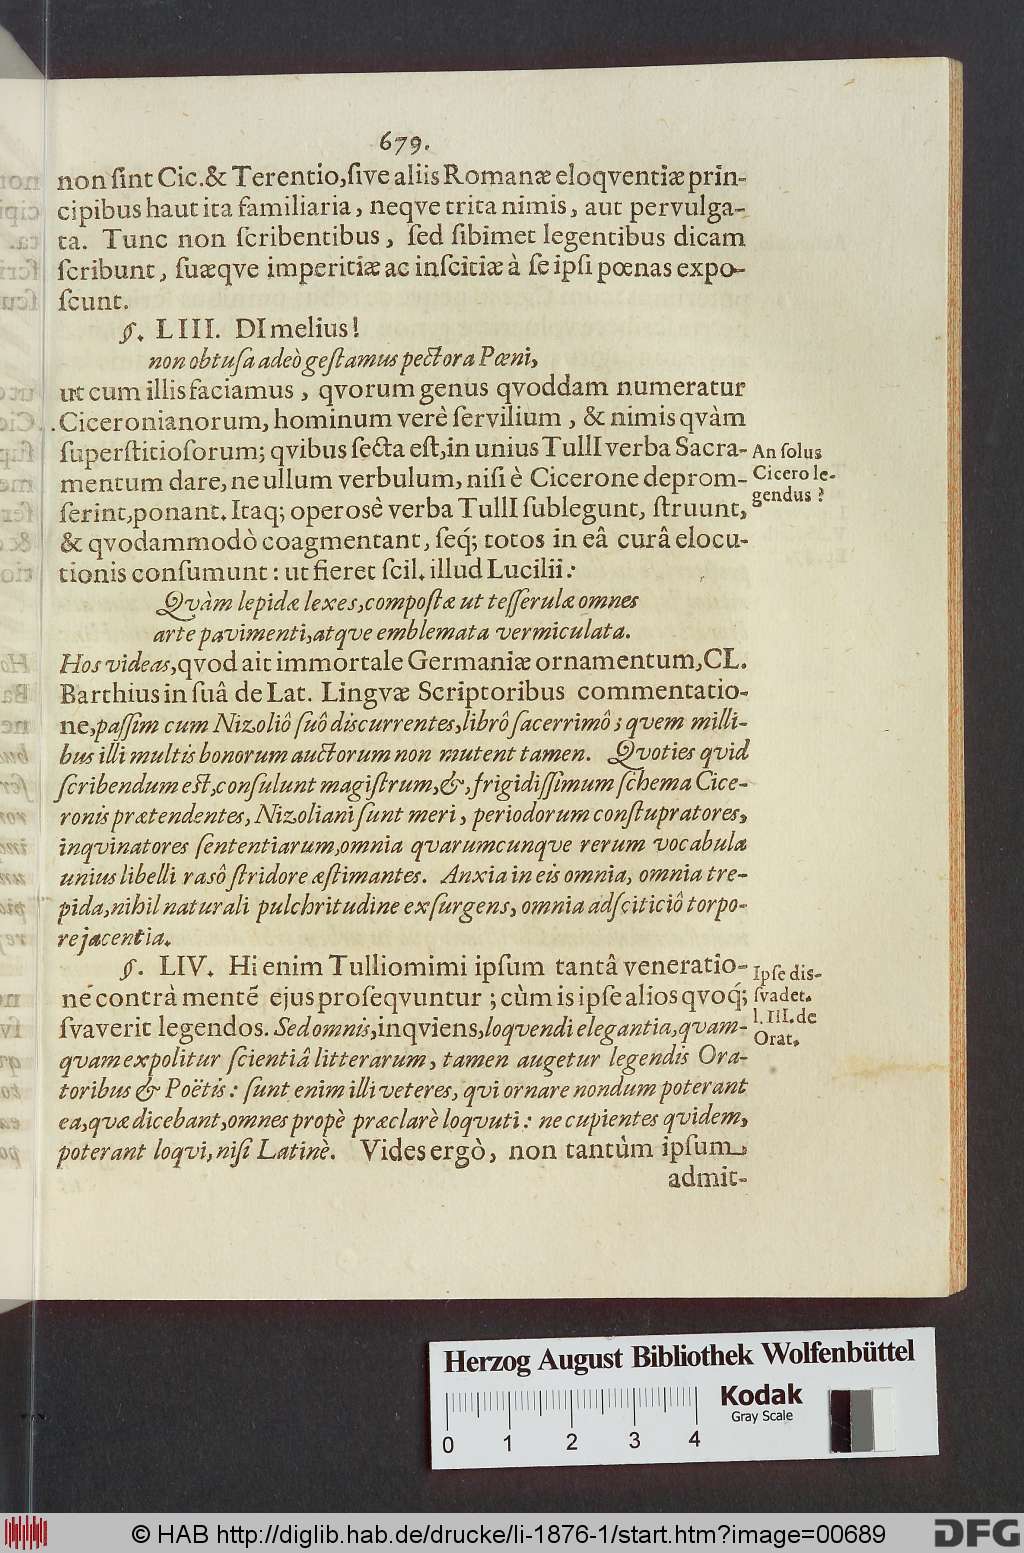 679.
non ſint Cic. & Terentio, ſive aliis Romanæ eloqventiæ prin-
cipibus haut ita familiaria, neqve trita nimis, aut pervulga-
ta. Tunc non ſcribentibus, ſed ſibimet legentibus dicam
ſcribunt, ſuæqve imperitiæ ac inſcitiæ à ſe ipſi pœnas expo-
ſcunt.
§. LIII. DI melius!
non obtuſa adeò geſtamus pectora Pœni,
ut cum illis faciamus, qvorum genus qvoddam numeratur
Ciceronianorum, hominum verè ſervilium, & nimis qvàm
ſuperſtitioſorum; qvibus ſecta eſt, in unius TullI verba Sacra-
mentum dare, ne ullum verbulum, niſi è Cicerone deprom-
ſerint, ponant. Itaq; operosè verba TullI ſublegunt, ſtruunt,
& qvodammodò coagmentant, ſeq́; totos in eâ curâ elocu-
tionis conſumunt: ut fieret ſcil. illud Lucilii:
An ſolus
Cicero le-
gendus?
Qvàm lepidæ lexes, compoſtæ ut teſſerulæ omnes
arte pavimenti, atqve emblemata vermiculata.
Hos videas, qvod ait immortale Germaniæ ornamentum, CL.
Barthius in ſuâ de Lat. Lingvæ Scriptoribus commentatio-
ne, paſſim cum Nizoliô ſuô discurrentes, librô ſacerrimô; qvem milli-
bus illi multis bonorum auctorum non mutent tamen. Qvoties qvid
ſcribendum eſt, conſulunt magiſtrum, &, frigidiſſimum ſchema Cice-
ronis prætendentes, Nizoliani ſunt meri, periodorum conſtupratores,
inqvinatores ſententiarum, omnia qvarumcunqve rerum vocabula
unius libelli rasô ſtridore æſtimantes. Anxia in eis omnia, omnia tre-
pida, nihil naturali pulchritudine exſurgens, omnia adſcititiô torpo-
re jacentia.
§. LIV. Hi enim Tulliomimi ipſum tantâ veneratio-
ne contrà mentē ejus proſeqvuntur; cùm is ipſe alios qvoq́;
ſvaverit legendos. Sed omnis, inqviens, loqvendi elegantia, qvam-
qvam expolitur ſcientiâ litterarum, tamen augetur legendis Ora-
toribus & Poëtis: ſunt enim illi veteres, qvi ornare nondum poterant
ea, qvæ dicebant, omnes propè præclarè loqvuti: ne cupientes qvidem,
poterant loqvi, niſi Latinè. Vides ergò, non tantùm ipſum
Ipſe dis-
ſvadet.
l. III. de
Orat.
admit-
Herzog August Bibliothek Wolfenbüttel
Kodak
Gray Scale
0 1 2 3 4
© HAB http://diglib.hab.de/drucke/li-1876-1/start.htm?image=00689
DFG